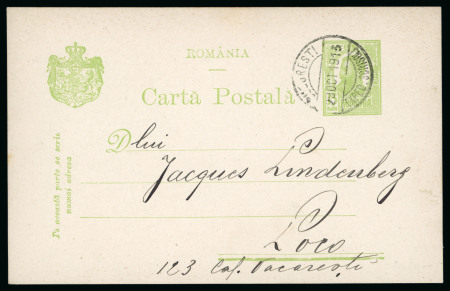 ROMÂNIA
Cartă Postală
BUCURESTI
29 OCT 1915
Dlui
Jacques Lindenberg
Loco
123 Cal. Vacaresti
Pe această parte se scrie
numai adresa